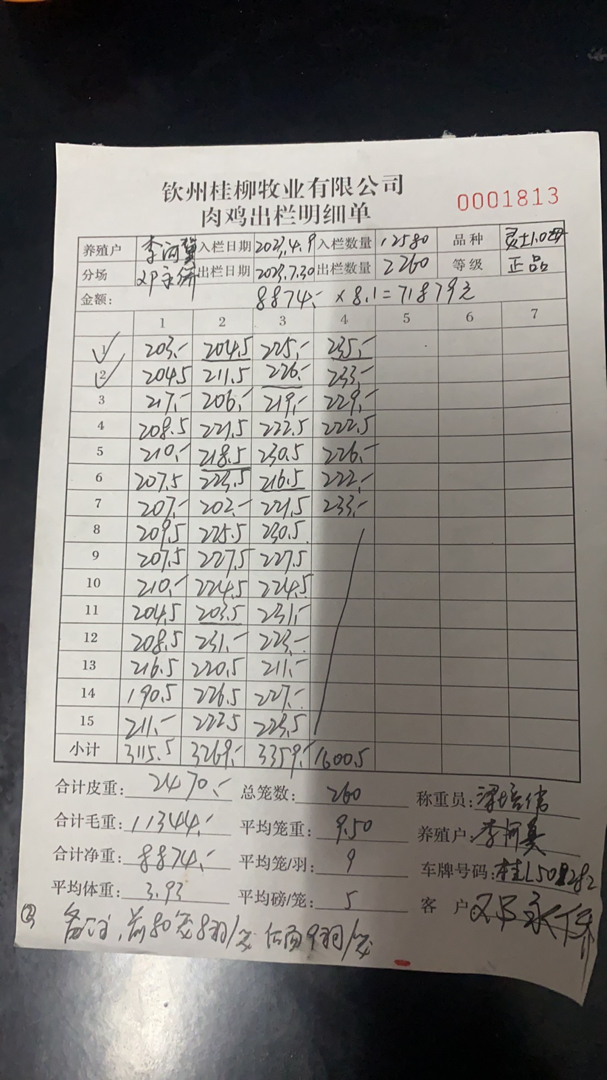 钦州桂柳牧业有限公司
肉鸡出栏明细单
0001813
养殖户 李河冀 入栏日期 2023.4.9 入栏数量 12580 品种 灵土1.0母
分场 出栏日期 2023.7.30 出栏数量 2260 等级 正品
金额: 8874.- ×8.1=71879元
1 2 3 4 5 6 7
1 203.- 204.5 225.- 235.-
2 204.5 211.5 226.- 233.-
3 217.- 206.- 219.- 229.-
4 208.5 221.5 222.5 222.5
5 210.- 218.5 230.5 226.-
6 207.5 223.5 216.5 222.-
7 207.- 202.- 221.5 233.-
8 209.5 225.5 230.5
9 207.5 227.5 227.5
10 210.- 224.5 224.5
11 204.5 203.5 231.-
12 208.5 231.- 223.-
13 216.5 220.5 211.-
14 190.5 226.5 227.-
15 211.- 222.5 223.5
小计 3115.5 3269.- 3359.- 1600.5
合计皮重: 2470.- 总笼数: 260 称重员:
合计毛重: 11344.- 平均笼重: 9.50 养殖户: 李河冀
合计净重: 8874.- 平均笼/羽: 9 车牌号码:
平均体重: 3.93 平均磅/笼: 5 客户 邓永
② 备注,前80笼8羽/笼 后面9羽/笼